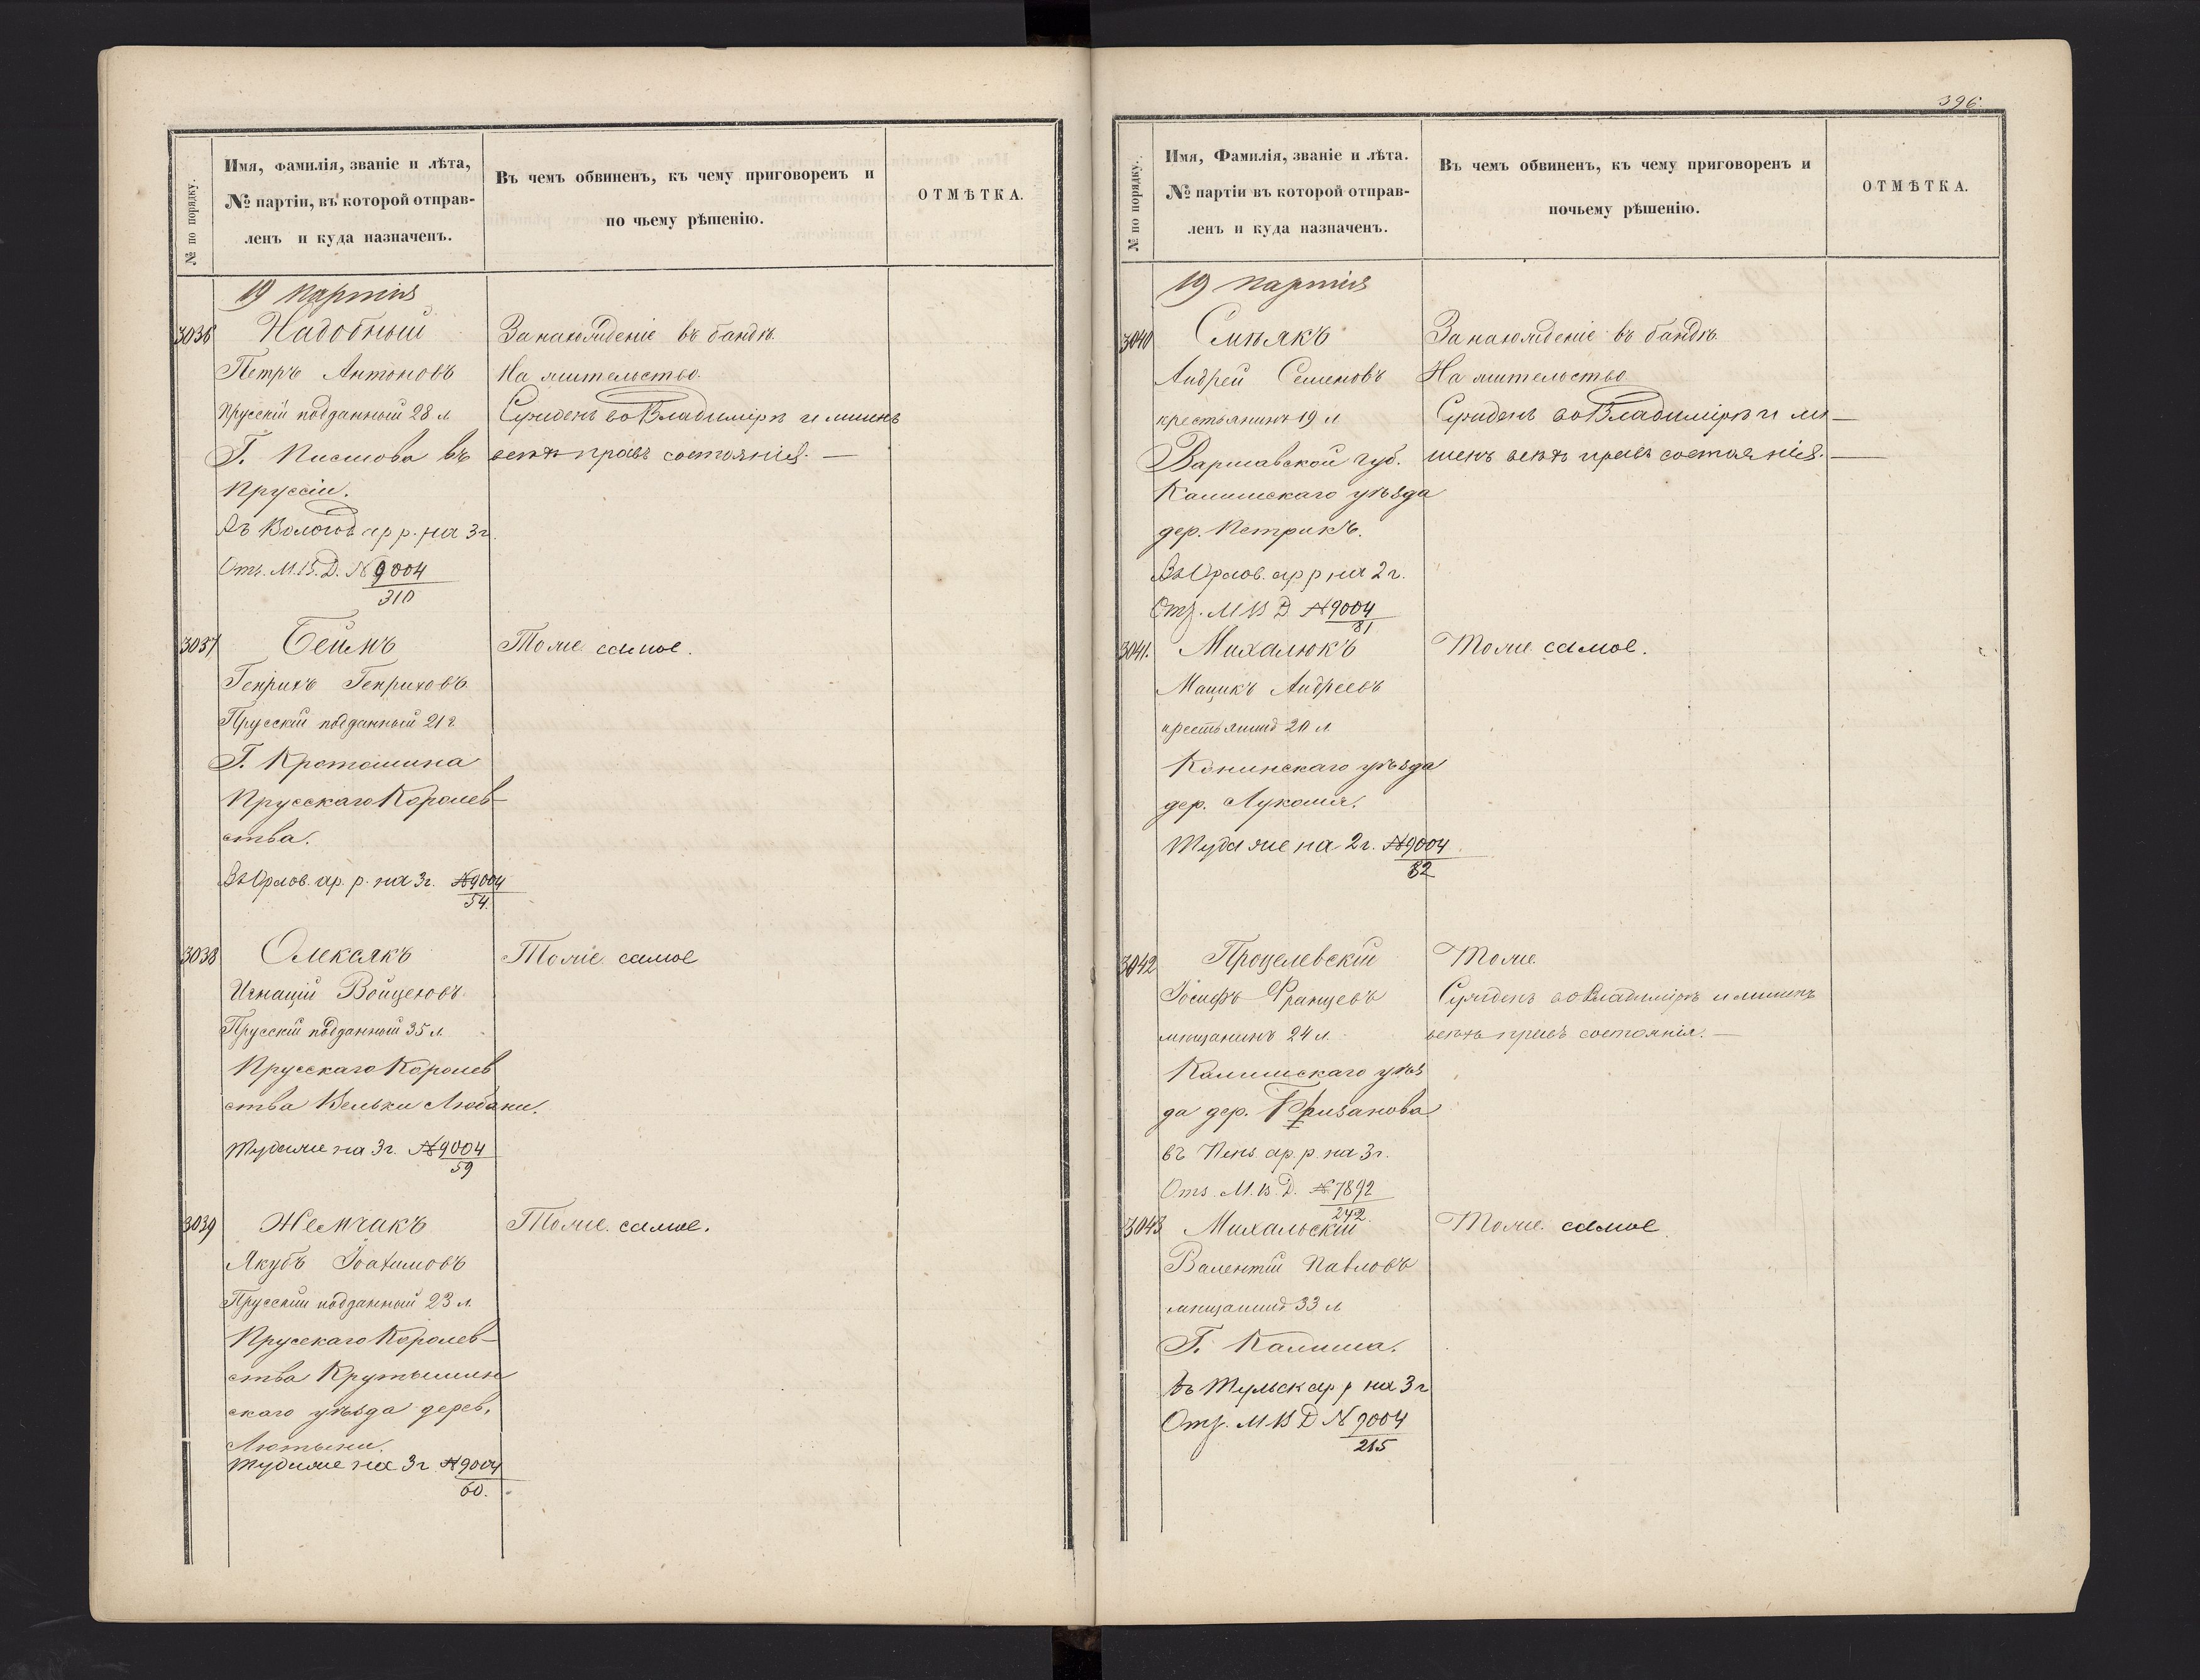 № по порядку.
Имя, фамилія, званіе и лѣта,
№ партіи, въ которой отправ-
ленъ и куда назначенъ.
Въ чемъ обвиненъ, къ чему приговоренъ и
по чьему рѣшенію.
ОТМѢТКА.
19 партія
3036 Надобный
Петръ Антоновъ
Прусскій подданный 28 л
Г. въ
Пруссіи.
Въ Волог. ар р. на 3 г.
Отз. М.В.Д. № 9004
310
За нахожденіе въ бандѣ.
На жительство.
Сужденъ во Владимірѣ и лишенъ
всѣхъ правъ состоянія. —
3037 Беймъ
Генрихъ Генриховъ
Прусскій подданный 21 г.
Г. Кротошина
Прусскаго Королев-
ства.
Въ Орлов. ар. р. на 3 г. № 9004
54.
Тоже самое.
3038 Олекаякъ
Игнацій Войцеховъ
Прусскій подданный 35 л.
Прусскаго Королев
ства Вельки
Туда же на 3 г. № 9004
59
Тоже самое
3039 Жемчакъ
Якубъ Іоахимовъ
Прусскій подданный 23 л.
Прусскаго Королев-
ства Крутышин
скаго уѣзда дерев.
Лютыни.
Туда же на 3 г № 9004
60.
Тоже самое.
396.
№ по порядку.
Имя, Фамилія, званіе и лѣта.
№ партіи въ которой отправ-
ленъ и куда назначенъ.
Въ чемъ обвиненъ, къ чему приговоренъ и
почьему рѣшенію.
ОТМѢТКА.
19 партія
3040
Андрей Семеновъ
крестьянинъ 19 л
Варшавской губ.
Калишскаго уѣзда
дер. Петрикъ.
Въ Орлов. ар р на 2 г.
Отз. М В Д № 9004
81
За нахожденіе въ бандѣ.
На жительство
Сужденъ во Владимірѣ и ли—
шенъ всѣхъ правъ состоянія. —
3041. Михалюкъ
Мацикъ Андреевъ
крестьянинъ 20 л
Конинскаго уѣзда
дер. Лукома.
Туда же на 2 г. № 9004
82
Тоже самое.
3042 Процелевскій
Іосифъ Францевъ
мѣщанинъ 24 л.
Калишскаго уѣз
да дер. Бризанова
въ Пенз. ар. р. на 3 г.
Отз. М. В. Д. № 7892
242.
Тоже
Сужденъ во Владимірѣ и лишенъ
всѣхъ правъ состоянія. —
3043 Михальскій
Валентій Павловъ
мѣщанинъ 33 л
Г. Калиша.
Въ Тульск ар р на 3 г
Отз. М В Д № 9004
215
Тоже самое.